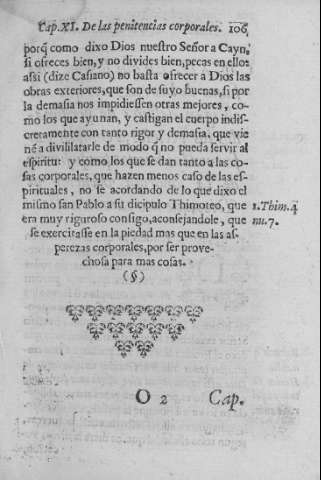 Cap. XI. De las penitencias corporales. 106
porq̃ como dixo Dios nuestro Señor a Cayn,
si ofreces bien, y no divides bien, pecas en ello:
assi (dize Casiano) no basta ofrecer a Dios las
obras exteriores, que son de suyo buenas, si por
la demasia nos impidiessen otras mejores, co-
mo los que ayunan, y castigan el cuerpo indis-
cretamente con tanto rigor y demasia, que vie
nẽ a divilitarle de modo q̃ no pueda servir al
espiritu: y como los que se dan tanto a las co-
sas corporales, que hazen menos caso de las es-
pirituales, no se acordando de lo que dixo el
mismo san Pablo a su dicipulo Thimoteo, que
1. Thim. 4
era muy riguroso consigo, aconsejandole, que
nu. 7.
se exercitasse en la piedad mas que en las as-
perezas corporales, por ser prove-
chosa para mas cosas.
(§)
O 2 Cap.